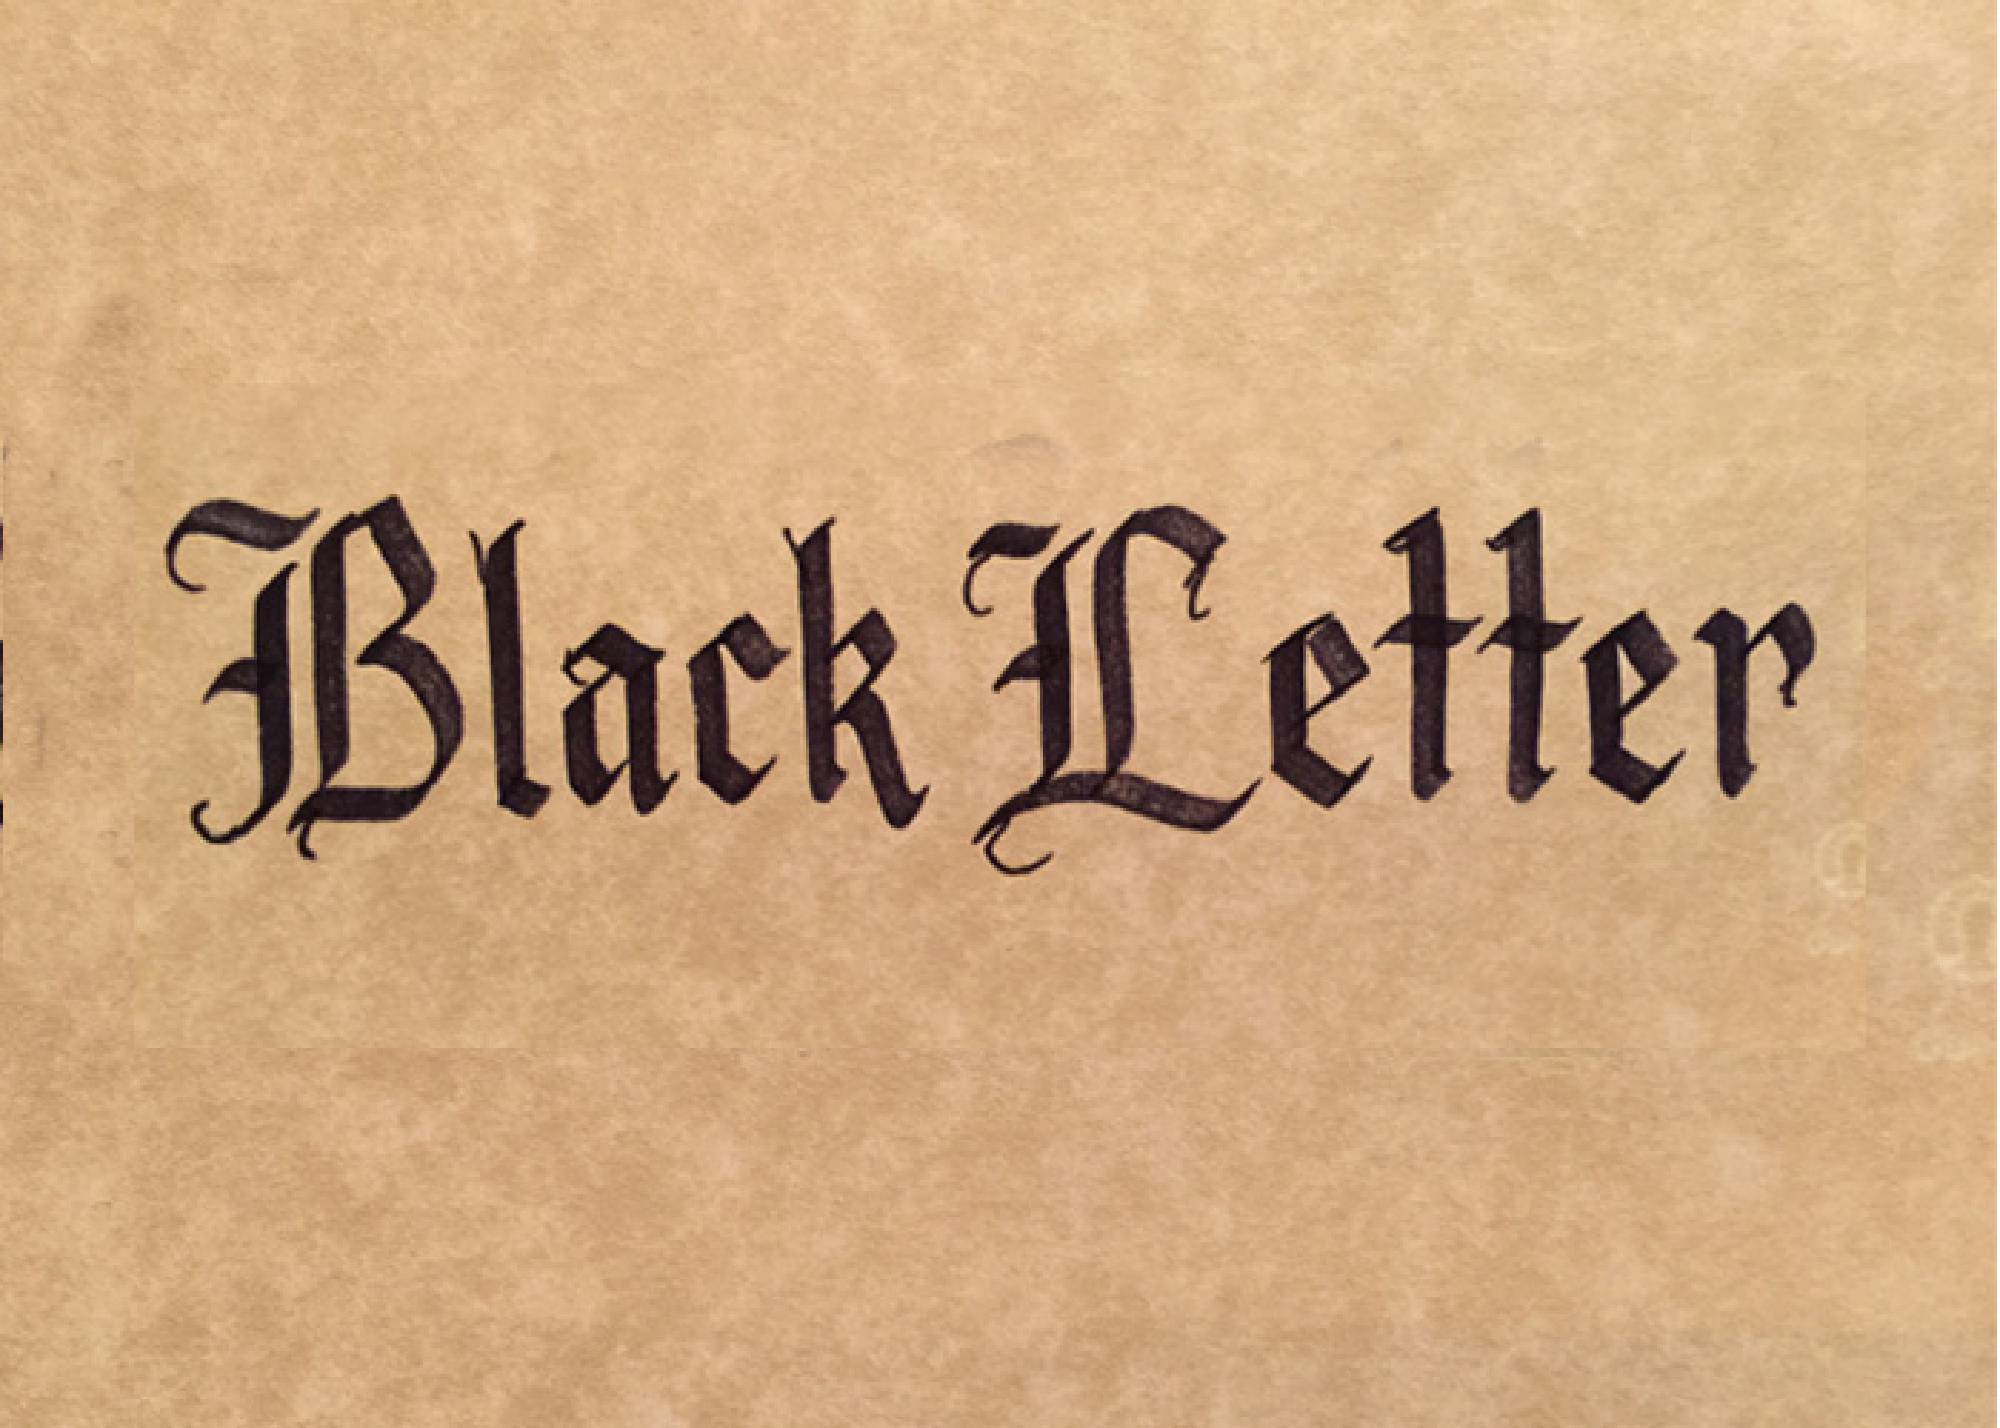 Black Letter